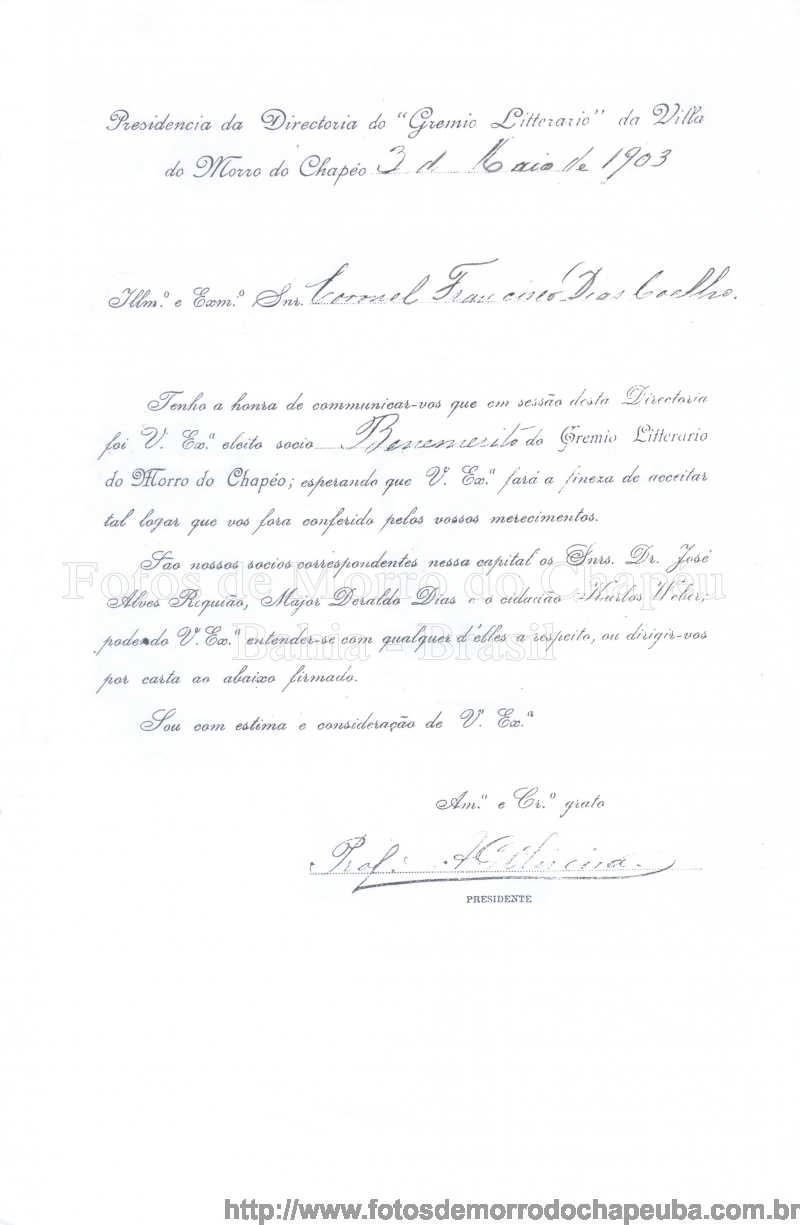 Presidencia da Directoria do "Gremio Litterario" da Villa
do Morro do Chapéo 3 de Maio de 1903
Illm.º e Exm.º Snr. Coronel Francisco Dias Coelho.
Tenho a honra de communicar-vos que em sessão desta Directoria
foi V. Ex.ª eleito socio Benemerito do Gremio Litterario
do Morro do Chapéo; esperando que V. Ex.ª fará a fineza de acceitar
tal logar que vos fora conferido pelos vossos merecimentos.
São nossos socios correspondentes nessa capital os Snrs. Dr. José
Alves Requião, Major Deraldo Dias e o cidadão Karlos Weber;
podendo V. Ex.ª entender-se com qualquer d'elles a respeito, ou dirigir-vos
por carta ao abaixo firmado.
Sou com estima e consideração de V. Ex.ª
Am.º e Cr.º grato
Prof.
PRESIDENTE
Fotos de Morro do Chapeu
Bahia - Brasil
http://www.fotosdemorrodochapeuba.com.br